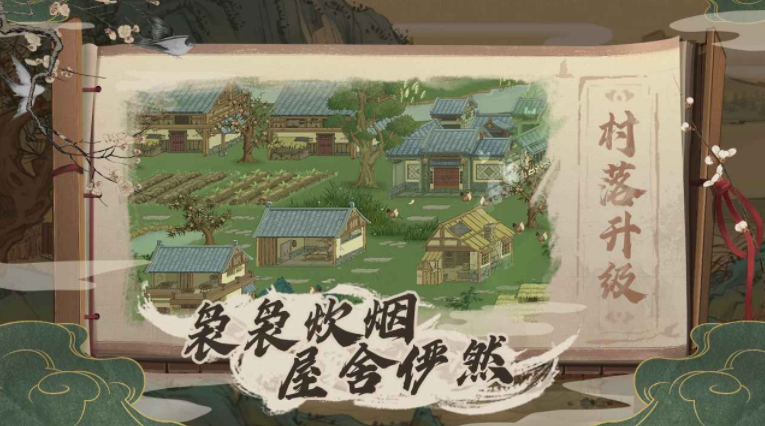 村落升级
袅袅炊烟
屋舍俨然